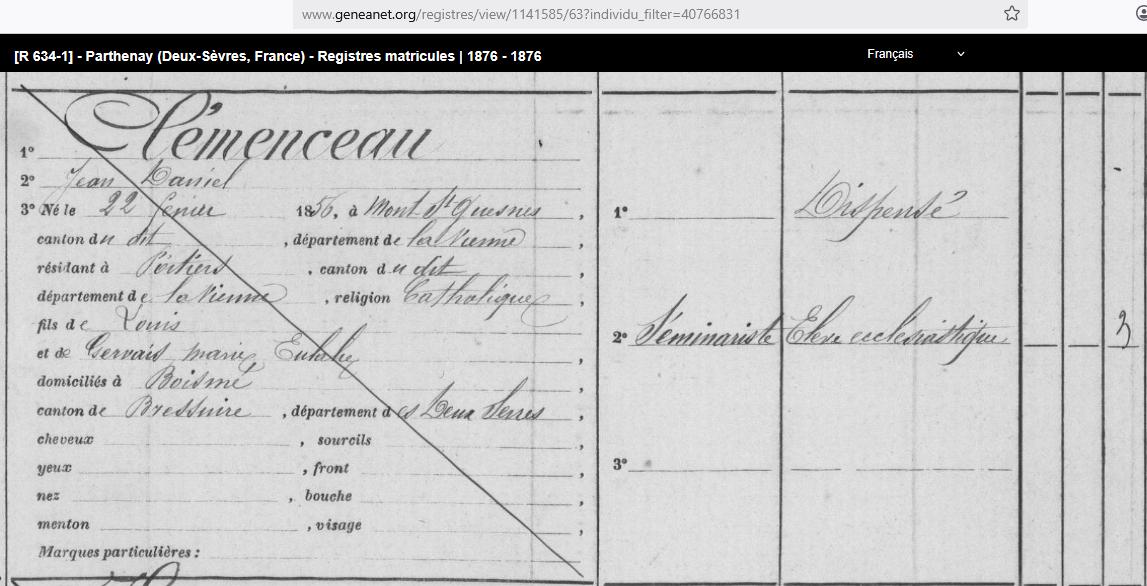 www.geneanet.org/registres/view/1141585/63?individu_filter=40766831
[R 634-1] - Parthenay (Deux-Sèvres, France) - Registres matricules | 1876 - 1876
Français
1° Clémenceau
2° Jean Daniel
3° Né le 22 fevrier 1856, à Mont St Guesnes,
canton du dit, département de la Vienne,
résidant à Poitiers, canton du dit,
département de la Vienne, religion Catholique,
fils de Louis
et de Gervais marie Eulalie,
domiciliés à Boismé
canton de Bressuire, département des Deux Sevres,
cheveux , sourcils ,
yeux , front ,
nez , bouche ,
menton , visage ,
Marques particulières :
1° Dispensé
2° Séminariste Elève ecclésiastique 3
3°